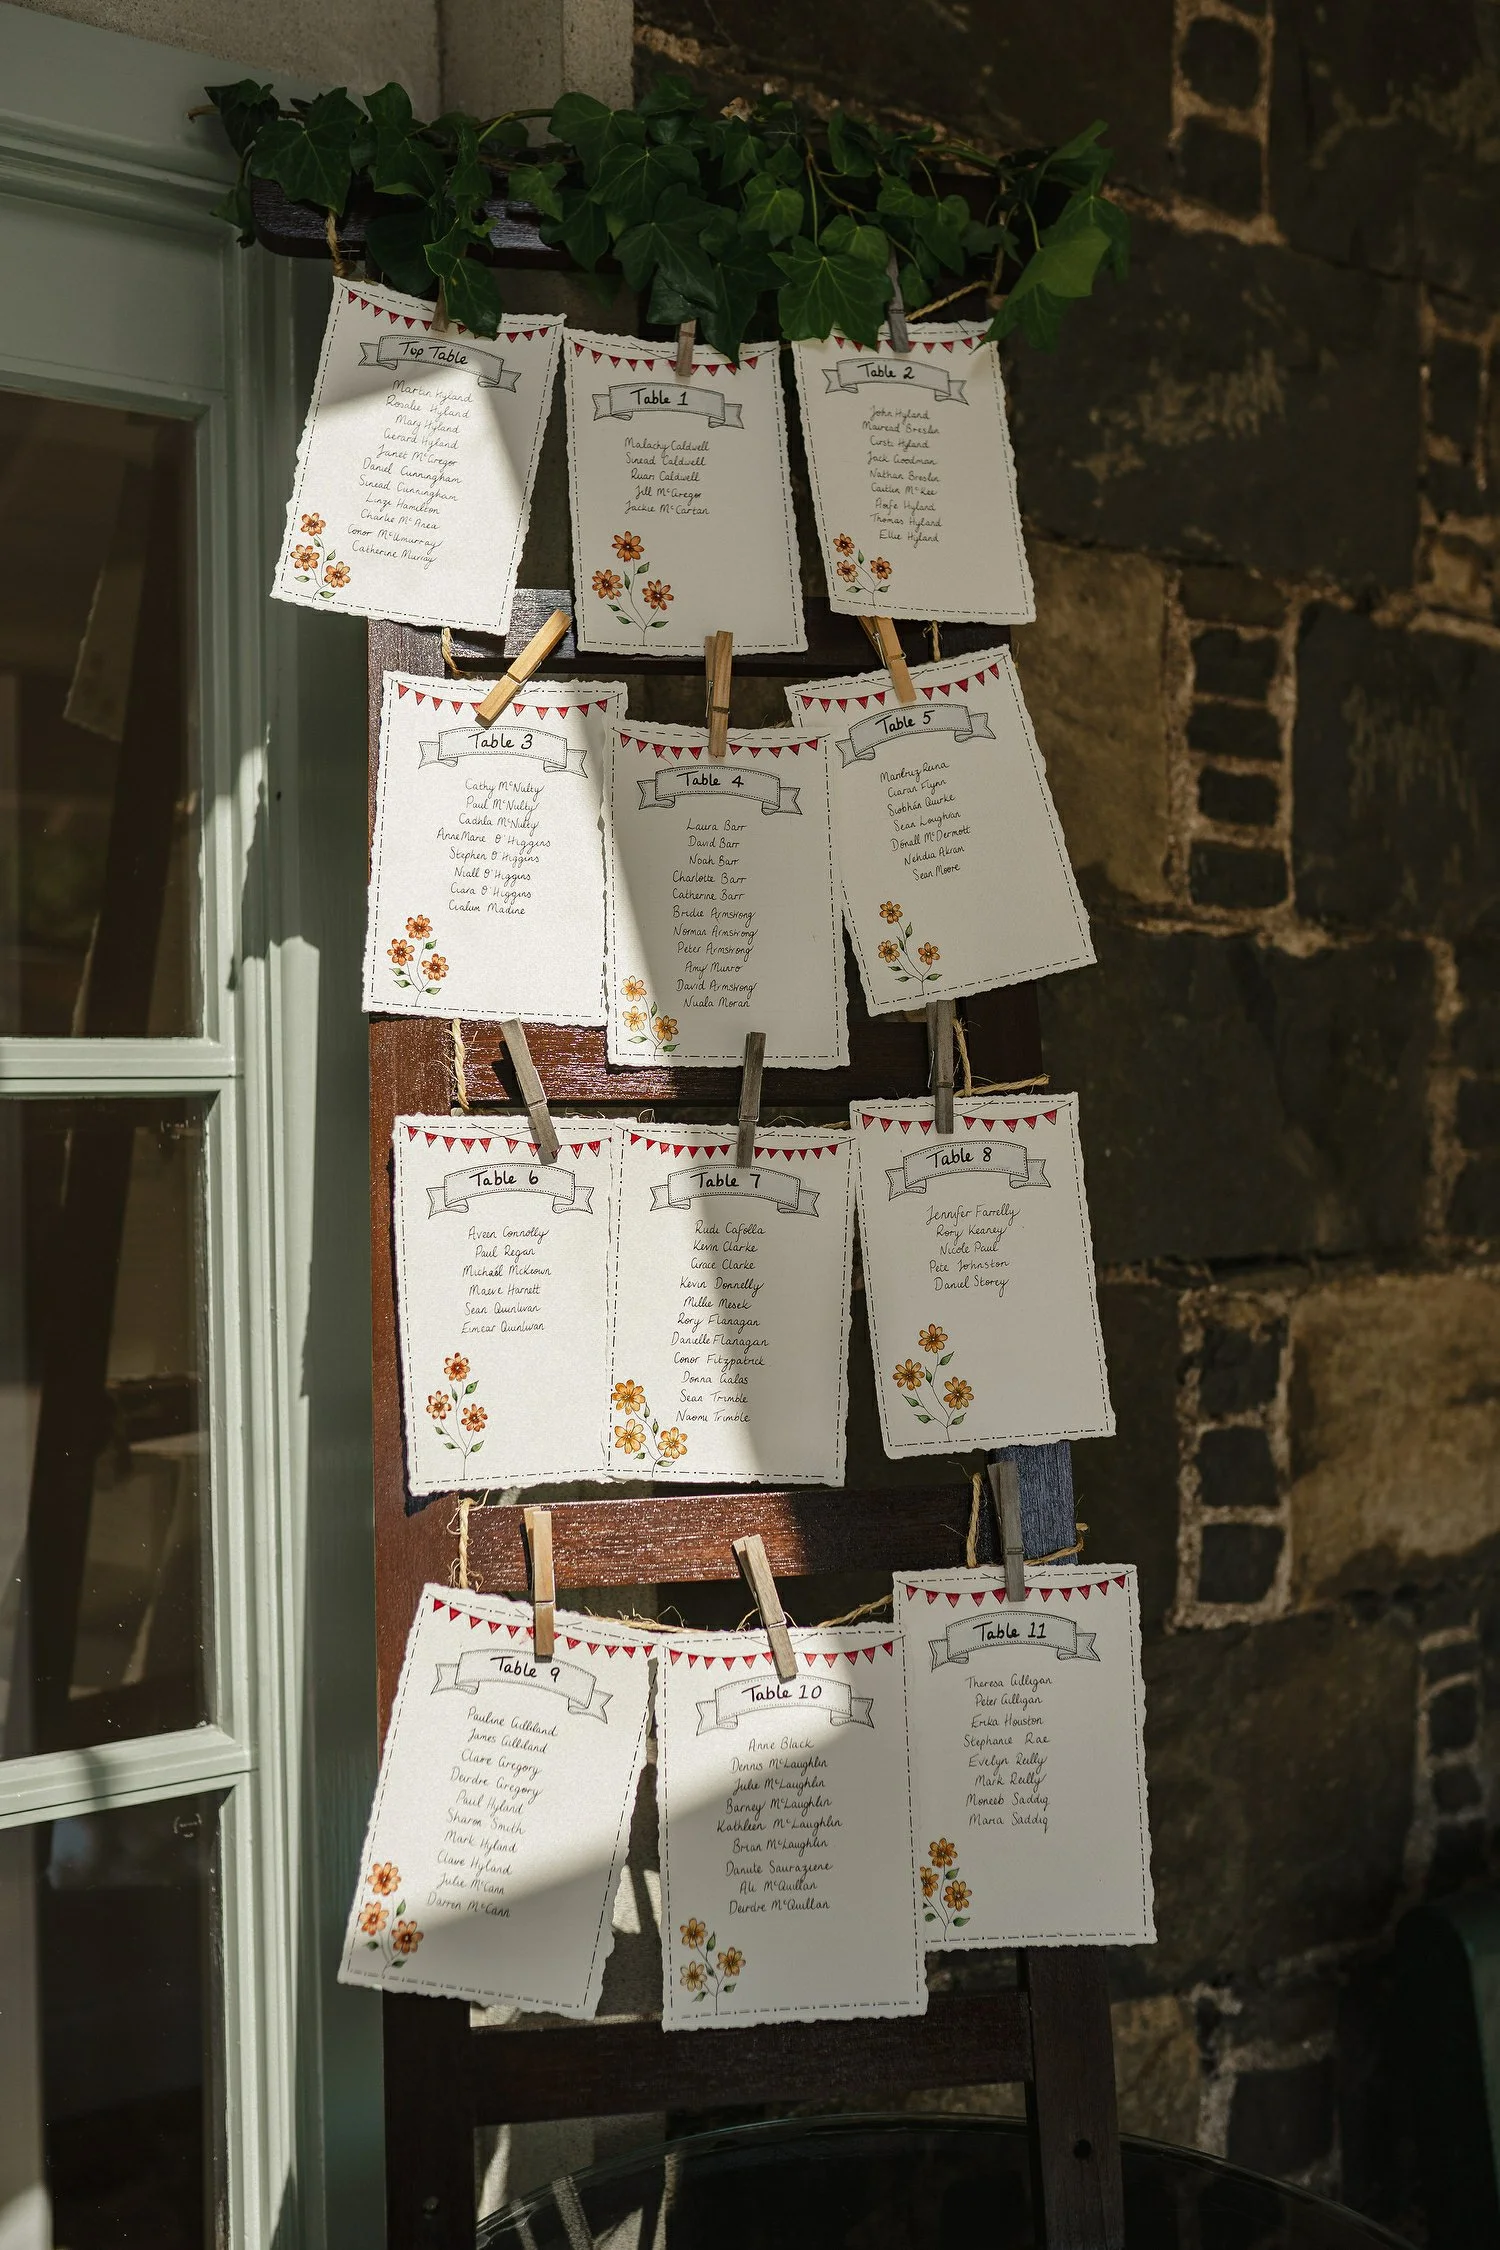 Top Table
Martin Hyland
Rosalie Hyland
Mary Hyland
Gerard Hyland
Janet McGregor
Daniel Cunningham
Sinead Cunningham
Linzi Hamilton
Charlie McAnea
Conor McIlmurray
Catherine Murray
Table 1
Malachy Caldwell
Sinead Caldwell
Ruari Caldwell
Jill McGregor
Jackie McCartan
Table 2
John Hyland
Mairead Breslin
Cirsti Hyland
Jack Goodman
Nathan Breslin
Caitlin McKee
Aoife Hyland
Thomas Hyland
Ellie Hyland
Table 3
Cathy McNulty
Paul McNulty
Cadhla McNulty
AnneMarie O'Higgins
Stephen O'Higgins
Niall O'Higgins
Ciara O'Higgins
Cialum Madine
Table 4
Laura Barr
David Barr
Noah Barr
Charlotte Barr
Catherine Barr
Bridie Armstrong
Norman Armstrong
Peter Armstrong
Amy Munro
David Armstrong
Nuala Moran
Table 5
Maricruz Reina
Ciaran Flynn
Siobhán Quirke
Sean Loughran
Donall McDermott
Nehdia Akram
Sean Moore
Table 6
Aveen Connolly
Paul Regan
Micháél McKeown
Maeve Harnett
Sean Quinlivan
Eimear Quinlivan
Table 7
Rudi Cafolla
Kevin Clarke
Grace Clarke
Kevin Donnelly
Millie Mesek
Rory Flanagan
Danielle Flanagan
Conor Fitzpatrick
Donna Galas
Sean Trimble
Naomi Trimble
Table 8
Jennifer Farrelly
Rory Keaney
Nicole Paul
Pete Johnston
Daniel Storey
Table 9
Pauline Gilliland
James Gilliland
Claire Gregory
Deirdre Gregory
Paul Hyland
Sharon Smith
Mark Hyland
Clare Hyland
Julie McCann
Darren McCann
Table 10
Anne Black
Dennis McLaughlin
Julie McLaughlin
Barney McLaughlin
Kathleen McLaughlin
Brian McLaughlin
Danute Sauraziene
Ali McQuillan
Deirdre McQuillan
Table 11
Theresa Gilligan
Peter Gilligan
Erika Houston
Stephanie Rae
Evelyn Reilly
Mark Reilly
Moneeb Saddiq
Maria Saddiq